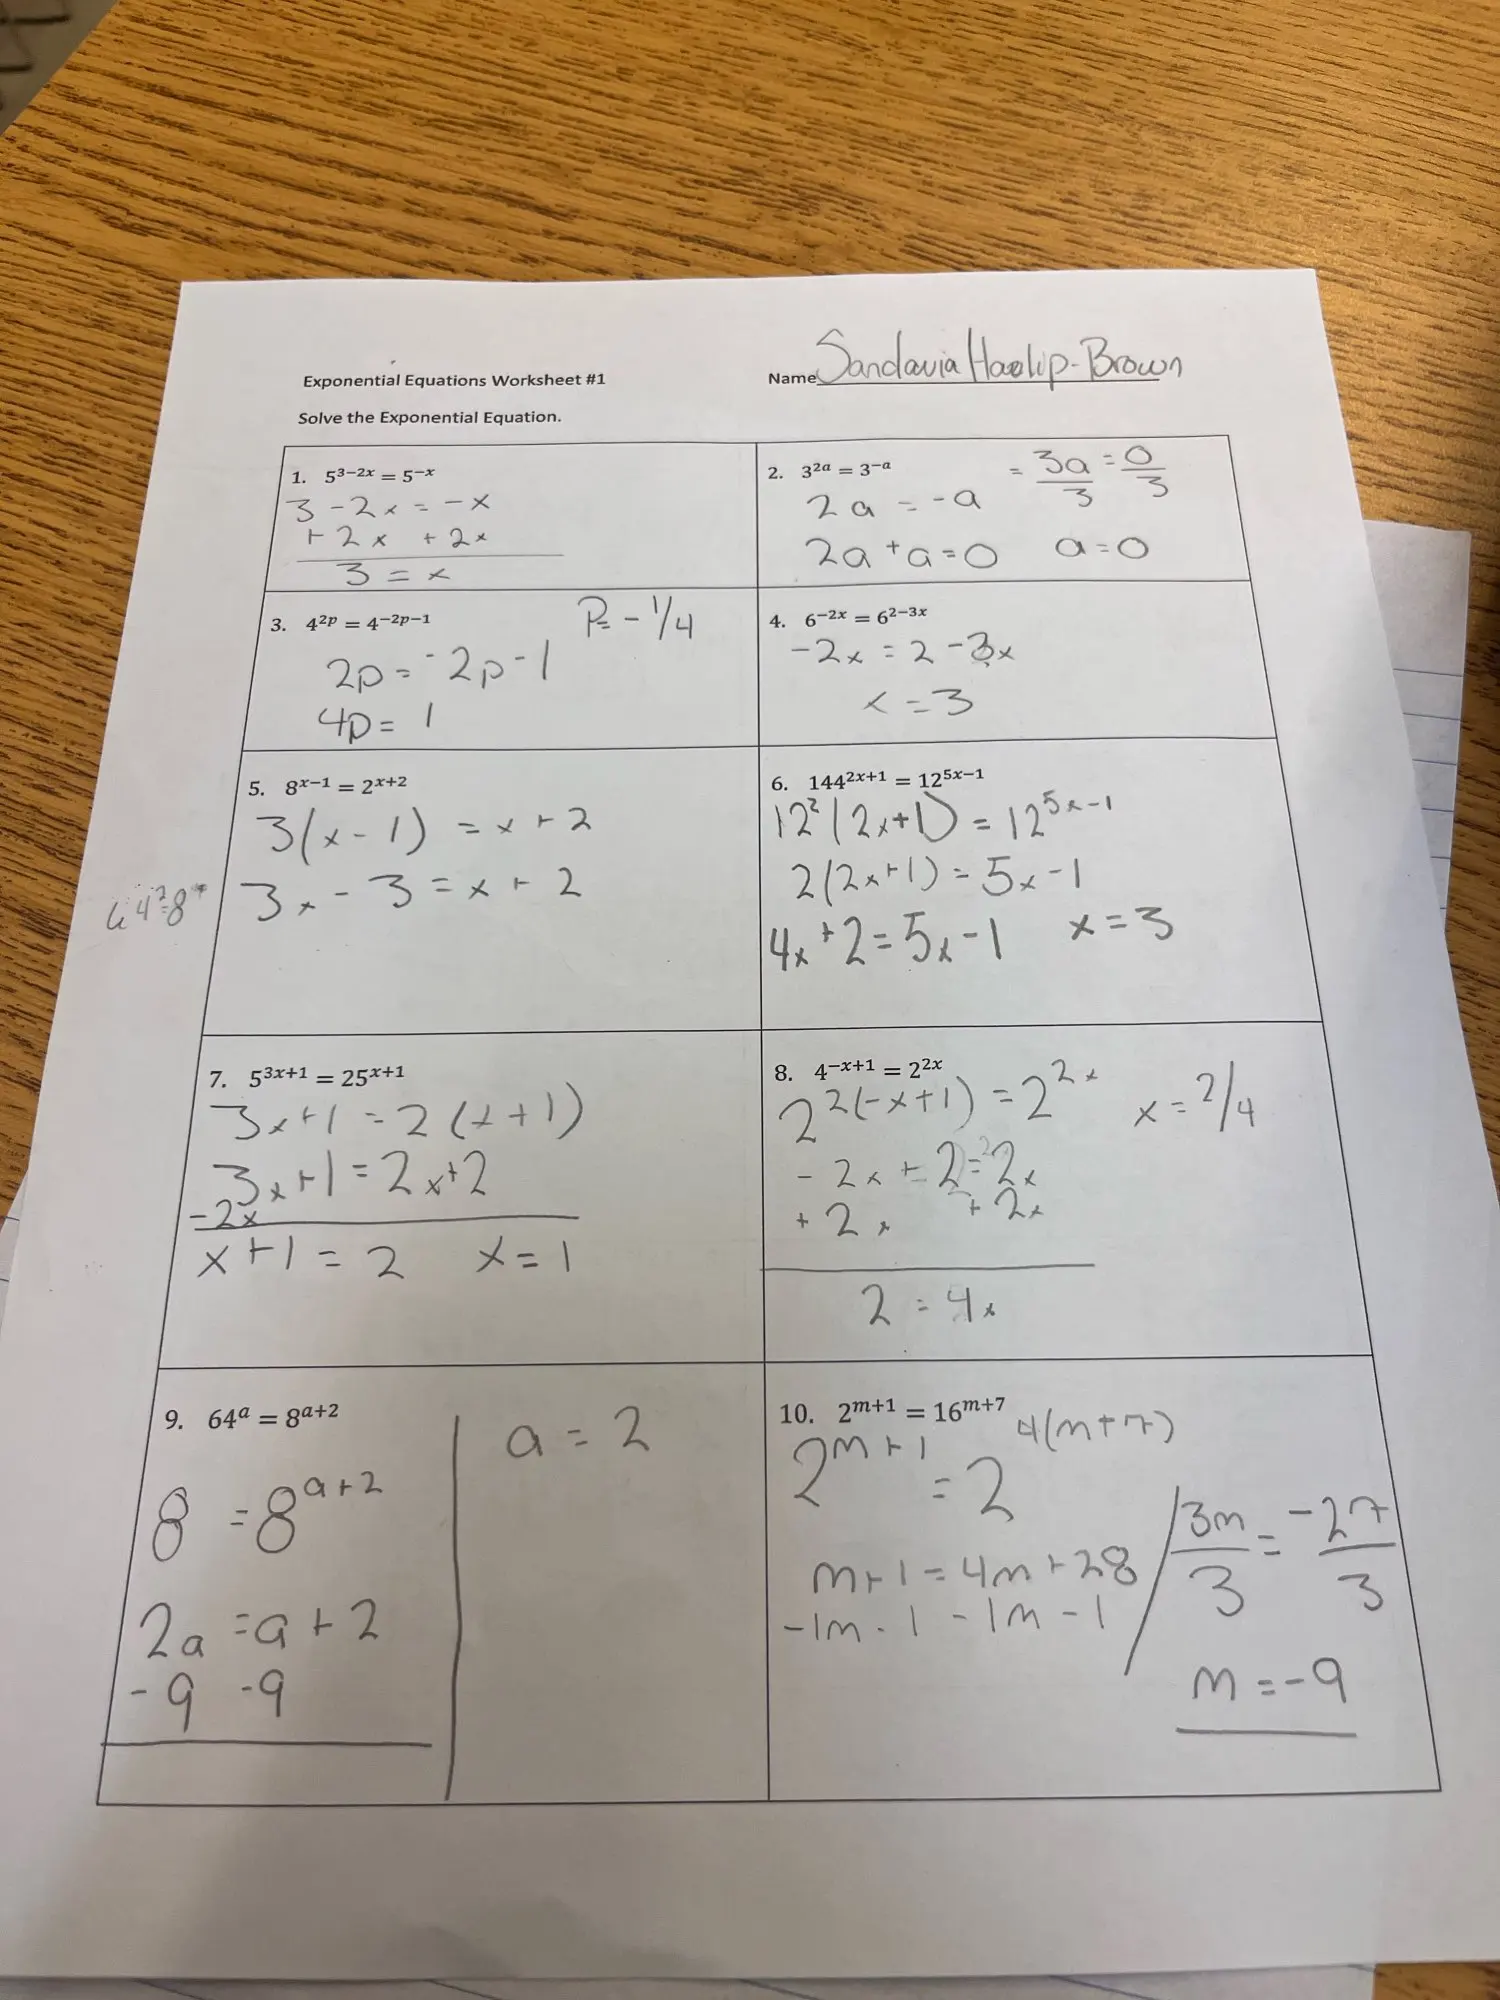 Exponential Equations Worksheet #1
Name Sandavia Haslip-Brown
Solve the Exponential Equation.
1. 5^{3−2x} = 5^{−x}
3 - 2x = -x
+ 2x + 2x
3 = x
2. 3^{2a} = 3^{−a}
2a = -a
2a + a = 0
= 3a/3 = 0/3
a = 0
3. 4^{2p} = 4^{−2p−1}
P = - 1/4
2p = -2p - 1
4p = 1
4. 6^{−2x} = 6^{2−3x}
-2x = 2 - 3x
x = 3
5. 8^{x−1} = 2^{x+2}
3(x - 1) = x + 2
3x - 3 = x + 2
6. 144^{2x+1} = 12^{5x−1}
12²(2x+1) = 12^{5x-1}
2(2x+1) = 5x - 1
4x + 2 = 5x - 1
x = 3
7. 5^{3x+1} = 25^{x+1}
3x+1 = 2(x+1)
3x+1 = 2x+2
-2x
x + 1 = 2
x = 1
8. 4^{−x+1} = 2^{2x}
2^{2(-x+1)} = 2^{2x}
x = 2/4
- 2x + 2 = 2x
+ 2x + 2x
2 = 4x
9. 64^{a} = 8^{a+2}
8 = 8^{a+2}
2a = a + 2
- 9 -9
a = 2
10. 2^{m+1} = 16^{m+7}
2^{m+1} = 2^{4(m+7)}
m+1 = 4m + 28
-1m - 1 - 1m - 1
3m/3 = -27/3
m = -9